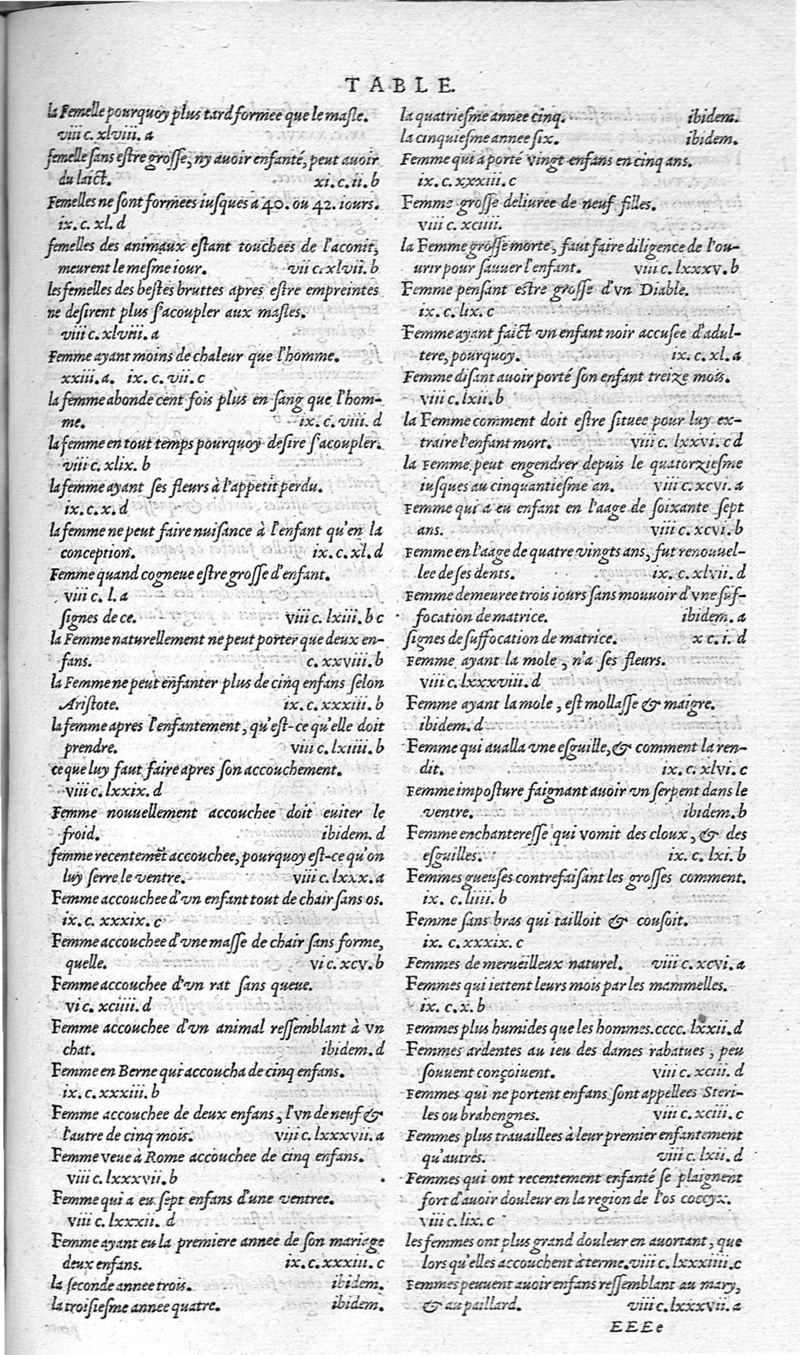 TABLE.
la Femelle pourquoy plus tard formee que le masle.
viii c. xlviii. a
femelle sans estre grosse, ny avoir enfanté, peut avoir
du laict. xi. c. ii. b
Femelles ne sont formees iusques a 40. ou 42. iours.
ix. c. xl. d
femelles des animaux estant touchees de l'aconit,
meurent le mesme iour. vii c. xlvii. b
les femelles des bestes bruttes apres estre empreintes
ne desirent plus s'acoupler aux masles.
viii c. xlviii. a
Femme ayant moins de chaleur que l'homme.
xxiii. a. ix. c. vii. c
la femme abonde cent fois plus en sang que l'hom-
me. ix. c. viii. d
la femme en tout temps pourquoy desire s'acoupler.
viii c. xlix. b
la femme ayant ses fleurs à l'appetit perdu.
ix. c. x. d
la femme ne peut faire nuisance à l'enfant qu'en la
conception. ix. c. xl. d
Femme quand cogneue estre grosse d'enfant.
viii c. l. a
signes de ce. viii c. lxiii. b c
la Femme naturellement ne peut porter que deux en-
fans. c. xxviii. b
la Femme ne peut enfanter plus de cinq enfans selon
Aristote. ix. c. xxxiii. b
la femme apres l'enfantement, qu'est-ce qu'elle doit
prendre. viii c. liiii. b
ce que luy faut faire apres son accouchement.
viii c. lxxix. d
Femme nouuellement accouchee doit euiter le
froid. ibidem. d
femme recentemēt accouchee, pourquoy est-ce qu'on
luy serre le ventre. viii c. lxxx. a
Femme accouchee d'vn enfant tout de chair sans os.
ix. c. xxxix. c
Femme accouchee d'vne masse de chair sans forme,
quelle. vi c. xcv. b
Femme accouchee d'vn rat sans queue.
vi c. xciiii. d
Femme accouchee d'vn animal ressemblant à vn
chat. ibidem. d
Femme en Berne qui accoucha de cinq enfans.
ix. c. xxxiii. b
Femme accouchee de deux enfans, l'vn de neuf &
l'autre de cinq mois. viii c. lxxxvii. a
Femme veue à Rome accouchee de cinq enfans.
viii c. lxxxvii. b
Femme qui a eu sept enfans d'une ventree.
viii c. lxxxii. d
Femme ayant eu la premiere annee de son mariage
deux enfans. ix. c. xxxiii. c
la seconde annee trois. ibidem.
la troisiesme annee quatre. ibidem.
la quatriesme annee cinq. ibidem.
la cinquiesme annee six. ibidem.
Femme qui a porté vingt enfans en cinq ans.
ix. c. xxxiii. c
Femme grosse deliuree de neuf filles.
viii c. xciiii.
la Femme grosse morte, faut faire diligence de l'ou-
urir pour sauuer l'enfant. viii c. lxxxv. b
Femme pensant estre grosse d'vn Diable.
ix. c. lix. c
Femme ayant faict vn enfant noir accusee d'adul-
tere, pourquoy. ix. c. xl. a
Femme disant auoir porté son enfant treize mois.
viii c. lxii. b
la Femme comment doit estre situee pour luy ex-
traire l'enfant mort. viii c. lxxvi. c d
la Femme peut engendrer depuis le quatorziesme
iusques au cinquantiesme an. viii c. xcvi. a
Femme qui a eu enfant en l'aage de soixante sept
ans. viii c. xcvi. b
Femme en l'aage de quatre vingts ans, fut renouuel-
lee de ses dents. ix. c. xlvii. d
Femme demeuree trois iours sans mouuoir d'vne suf-
focation de matrice. ibidem. a
signes de suffocation de matrice. x c. i. d
Femme ayant la mole, n'a ses fleurs.
viii c. lxxxviii. d
Femme ayant la mole, est mollasse & maigre.
ibidem. d
Femme qui aualla vne esguille, & comment la ren-
dit. ix. c. xlvi. c
Femme imposture faignant auoir vn serpent dans le
ventre. ibidem. b
Femme enchanteresse qui vomit des cloux, & des
esguilles. ix. c. lxi. b
Femmes gueuses contrefaisant les grosses comment.
ix. c. liiii. b
Femme sans bras qui tailloit & cousoit.
ix. c. xxxix. c
Femmes de merueilleux naturel. viii c. xcvi. a
Femmes qui iettent leurs mois par les mammelles.
ix. c. x. b
Femmes plus humides que les hommes. cccc. lxxii. d
Femmes ardentes au ieu des dames rabatues, peu
souuent conçoiuent. viii c. xciii. d
Femmes qui ne portent enfans sont appellees Steri-
les ou brahengnes. viii c. xciii. c
Femmes plus trauaillees à leur premier enfantement
qu'autrès. viii c. lxii. d
Femmes qui ont recentement enfanté se plaignent
fort d'auoir douleur en la region de l'os coccyx.
viii c. lix. c
les femmes ont plus grand douleur en auortant, que
lors qu'elles accouchent à terme. viii c. lxxxiiii. c
Femmes peuuent auoir enfans ressemblant au mary,
& au paillard. viii c. lxxxvii. a
EEEe